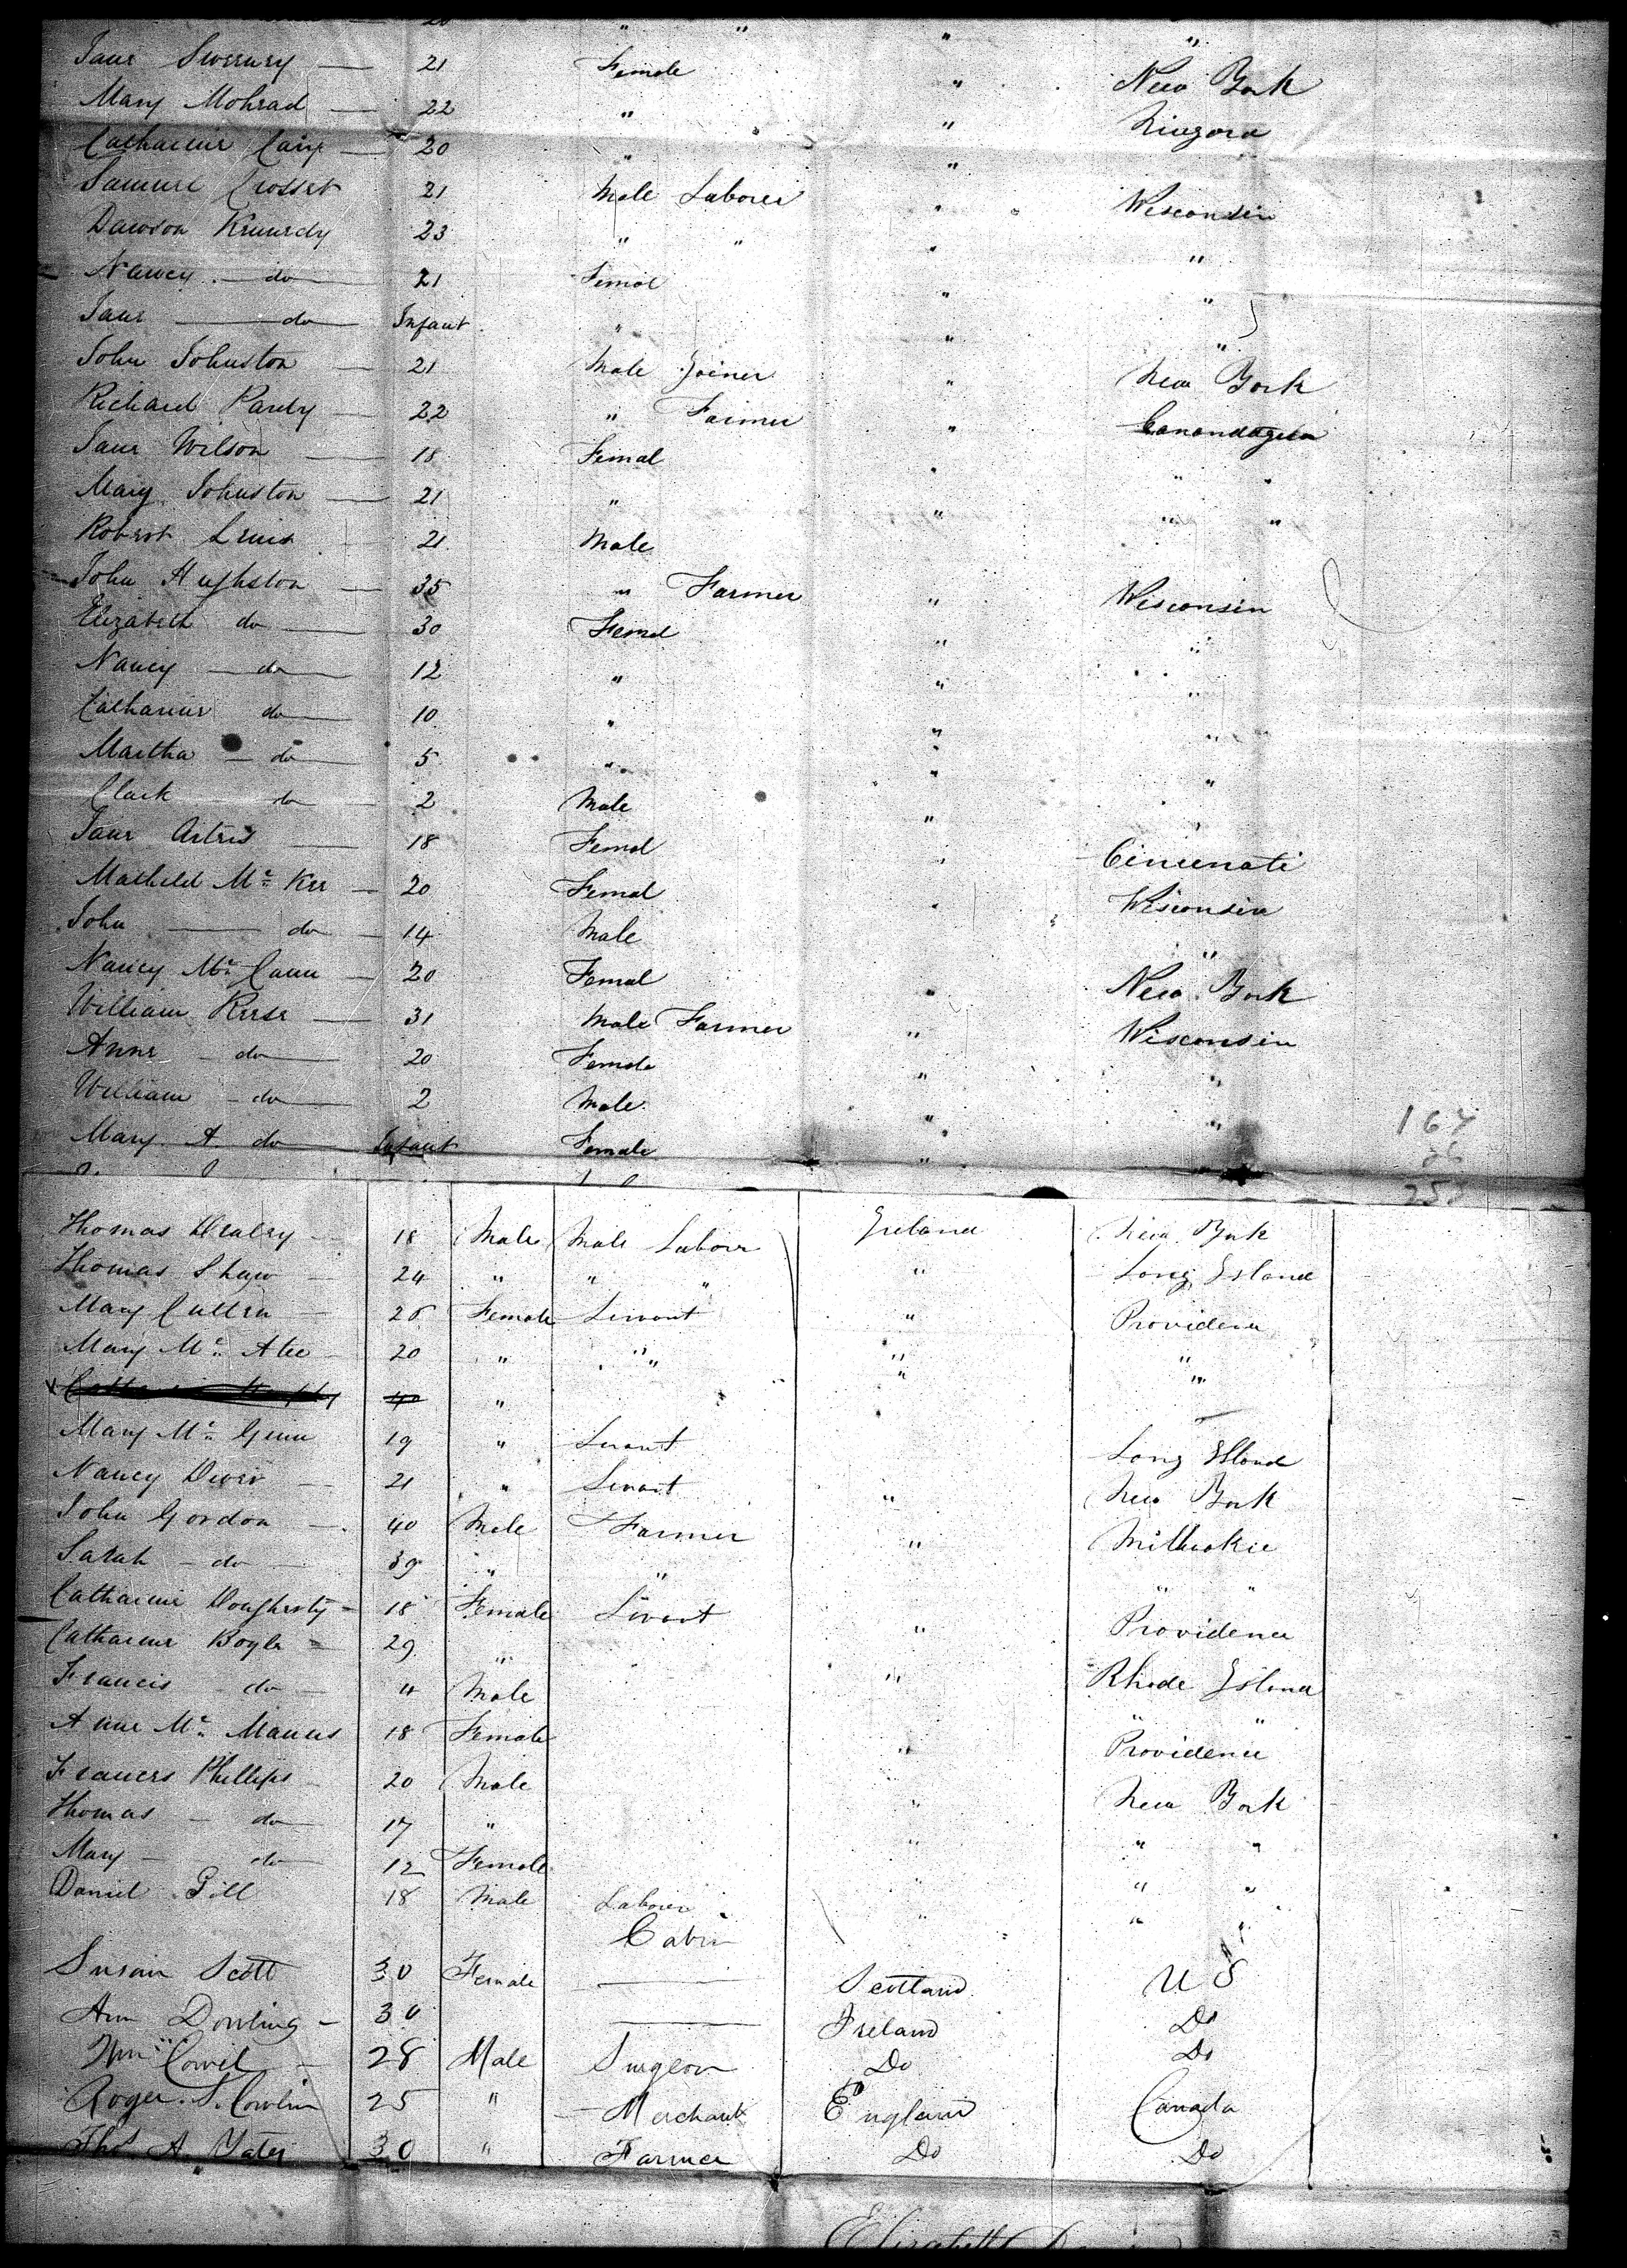 20 " " " "
Jane Sweeney 21 Female " New York
Mary Mohrad 22 " " Niagora
Catharine Cairy 20 " "
Samuel Crosset 21 Male Laborer " Wisconsin
Dawson Kennedy 23 " " " "
Nancy do 21 Femal " "
Jane do Infant " " "
John Johnston 21 Male Joiner " New York
Richard Pardy 22 " Farmer " Canandagua
Jane Wilson 18 Femal " " "
Mary Johnston 21 " " " "
Robert Lewis 21 Male
John Hughston 35 " Farmer " Wisconsin
Elizabeth do 30 Femal " "
Nancy do 12 " " "
Catharine do 10 " " "
Martha do 5 " " "
Clark do 2 Male " "
Jane 18 Femal " Cincinati
Mathild Mc Kee 20 Femal " Wisconsin
John do 14 Male "
Nancy Mc Cann 20 Femal " New York
William Reese 31 Male Farmer " Wisconsin
Anne do 20 Female " "
William do 2 Male " "
Mary A do Infant Female "
Thomas Healey 18 Male Male Labour Ireland New York
Thomas Shaw 24 " " " " Long Island
Mary Cullen 26 Female Servant " Providence
Mary Mc Atee 20 " " " "
40 " " "
Mary Mc Ginn 19 " Servant Long Island
Nancy Diver 21 " Servant " New York
John Gordon 40 Male Farmer " Milluokie
Sarah do 39 " " " "
Catharine Dougherty 18 Female Servant " Providence
Catharine Boyle 29 " " Rhode Island
Francis do 4 Male " "
Anne Mc Manus 18 Female " Providence
Francis Phillips 20 Male " New York
Thomas do 17 " " " "
Mary do 12 Female " " "
Daniel Gill 18 Male Laborer " " "
Cabin
Susan Scott 30 Female Scotland U S
Ann Dowling 30 Ireland Do
Wm 28 Male Surgeon Do Do
Roger S. 25 " Merchant England Canada
Thos A. Yates 30 " Farmer Do Do